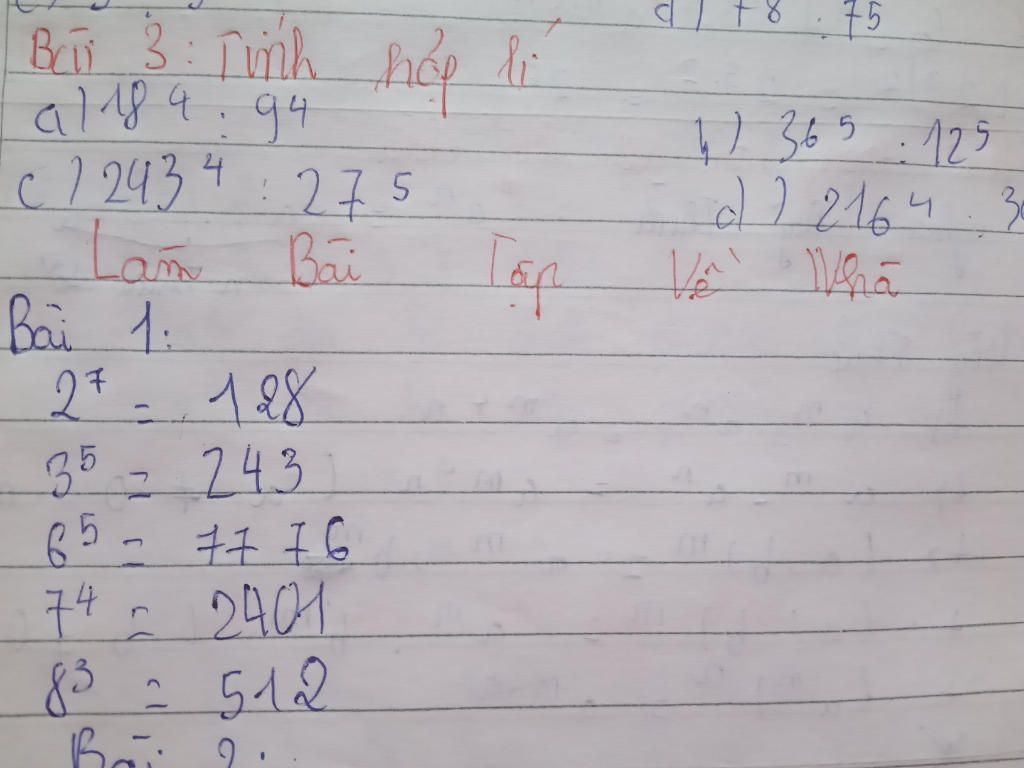 d) 78 : 75
Bài 3: Tính hợp lí
a) 18⁴ : 9⁴
b) 36⁵ : 12⁵
c) 243⁴ : 27⁵
d) 216⁴ :
Làm Bài Tập Về Nhà
Bài 1:
2⁷ = 128
3⁵ = 243
6⁵ = 7776
7⁴ = 2401
8³ = 512
Bài 2: